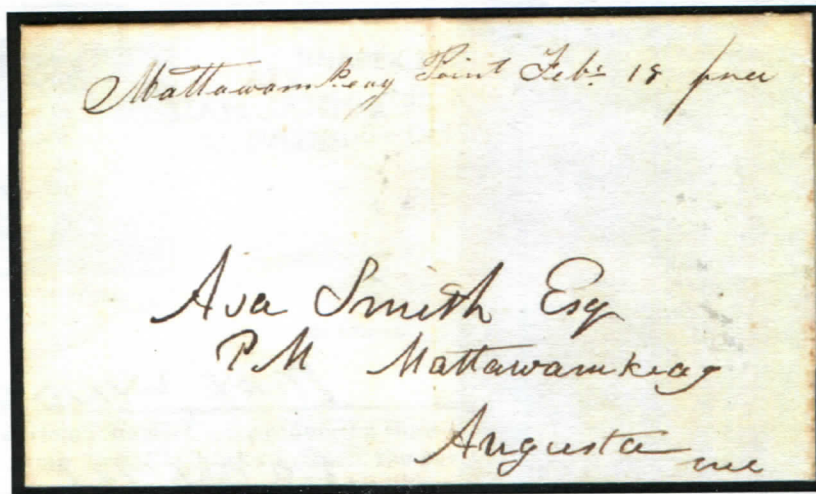 Mattawamkeag Point Feb: 18 free
Asa Smith Esq
P.M Mattawamkeag
Augusta me